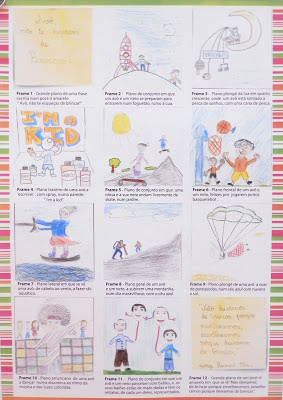 Avô,
não te esqueças
de
Brincar!
Frame 1 - Grande plano de uma frase
escrita num post it amarelo
"Avô, não te esqueças de brincar!"
Frame 2 - Plano de conjunto em que
um avô e um neto se preparam para
entrarem num foguetão, rumo à Lua.
Frame 3 - Plano
crescente, onde um avô está sentado à
pesca de sonhos, com uma cana de pesca.
I'M a
KID
Frame 4 - Plano traseiro de uma avó a
escrever, com spray, numa parede:
"I'm a kid"
Frame 5 - Plano de conjunto em que uma
idosa e a sua neta andam livremente de
skate, num jardim.
Frame 6 - Plano frontal de um avô e
um neto, felizes por jogarem juntos
basquetebol.
Frame 7 - Plano lateral em que se vê
uma avó, de cabelo ao vento, a fazer ski
aquático.
Frame 8 - Plano geral de um avô
e um neto, a subirem uma montanha,
num dia maravilhoso, com o céu azul.
Frame 9 - Plano
de parapente, num céu azul com nuvens
e sol.
Não deixamos
de brincar porque
envelhecemos,
envelhecemos
porque deixamos
de brincar.
Frame 10 - Plano americano de uma avó
a dançar numa discoteca ao ritmo da
música e das luzes coloridas.
Frame 11 - Plano de conjunto em que um
avô e um neto passeiam com balões, e os
Frame 12 - Grande plano de um post it
amarelo em que se lê "Não deixamos
de brincar porque envelhecemos, envelhe-
cemos porque deixamos de brincar."